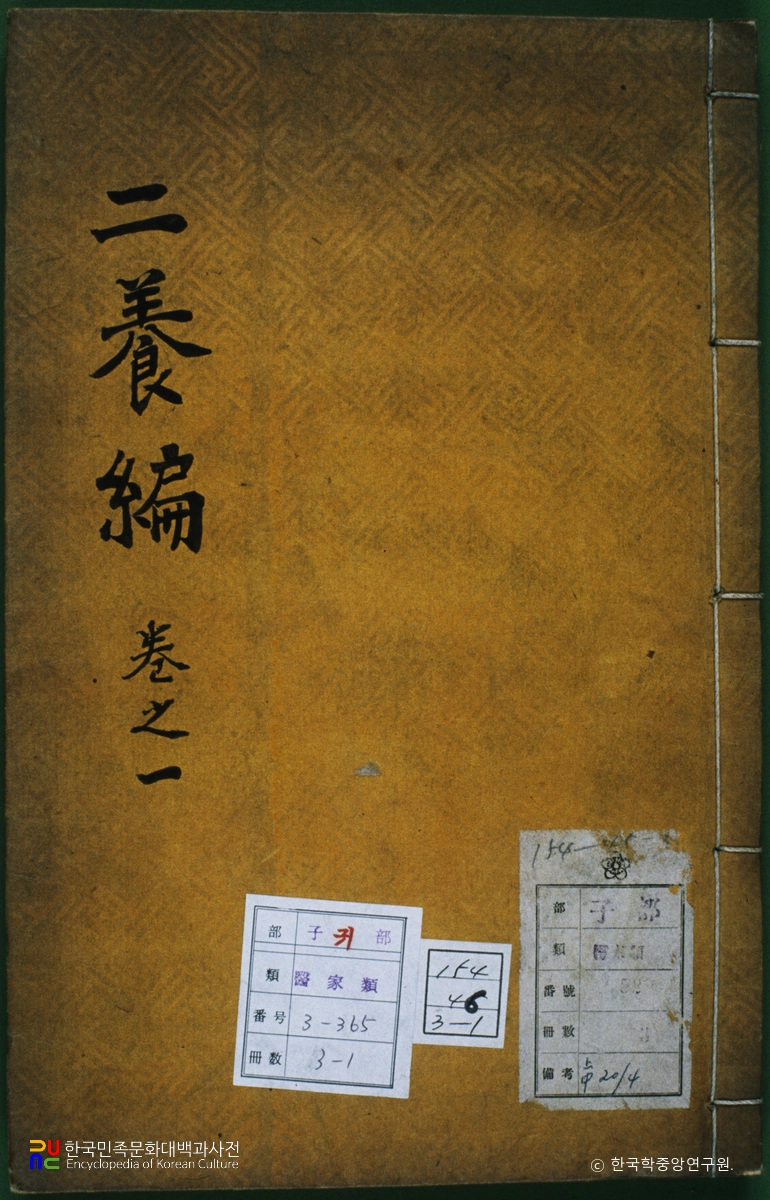 二養編
卷之一
部 子 귀 部
類 醫家類
番号 3-365
冊数 3-1
154
46
3-1
154-
部 子部
類
番號
冊數 3
備考 20/4
한국민족문화대백과사전
Encyclopedia of Korean Culture
© 한국학중앙연구원.